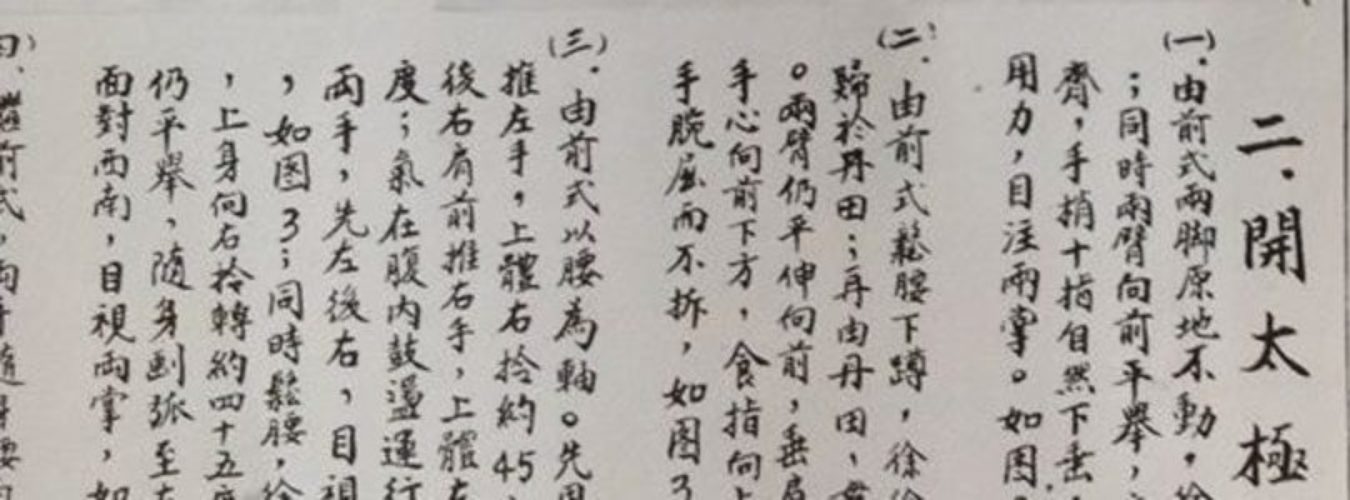 二.開太極
(一).由前式兩脚原地不動。徐
；同時兩臂向前平舉，
齊，手梢十指自然下垂，
用力，目注兩掌。如图
(二).由前式鬆腰下蹲，徐徐
歸於丹田；再由丹田、
。兩臂仍平伸向前，垂肩
手心向前下方，食指向上
手腕屈而不拆，如图3
(三).由前式以腰為軸。先
推左手，上體右拎約45
後右肩前推右手，上體左
度；氣在腹內鼓盪運行
兩手，先左後右，目視
，如图3；同時鬆腰，徐
，上身向右拎轉約四十五度
仍平舉，隨身劃弧至
面對西南，目視兩掌，如
前式，兩手隨身腰